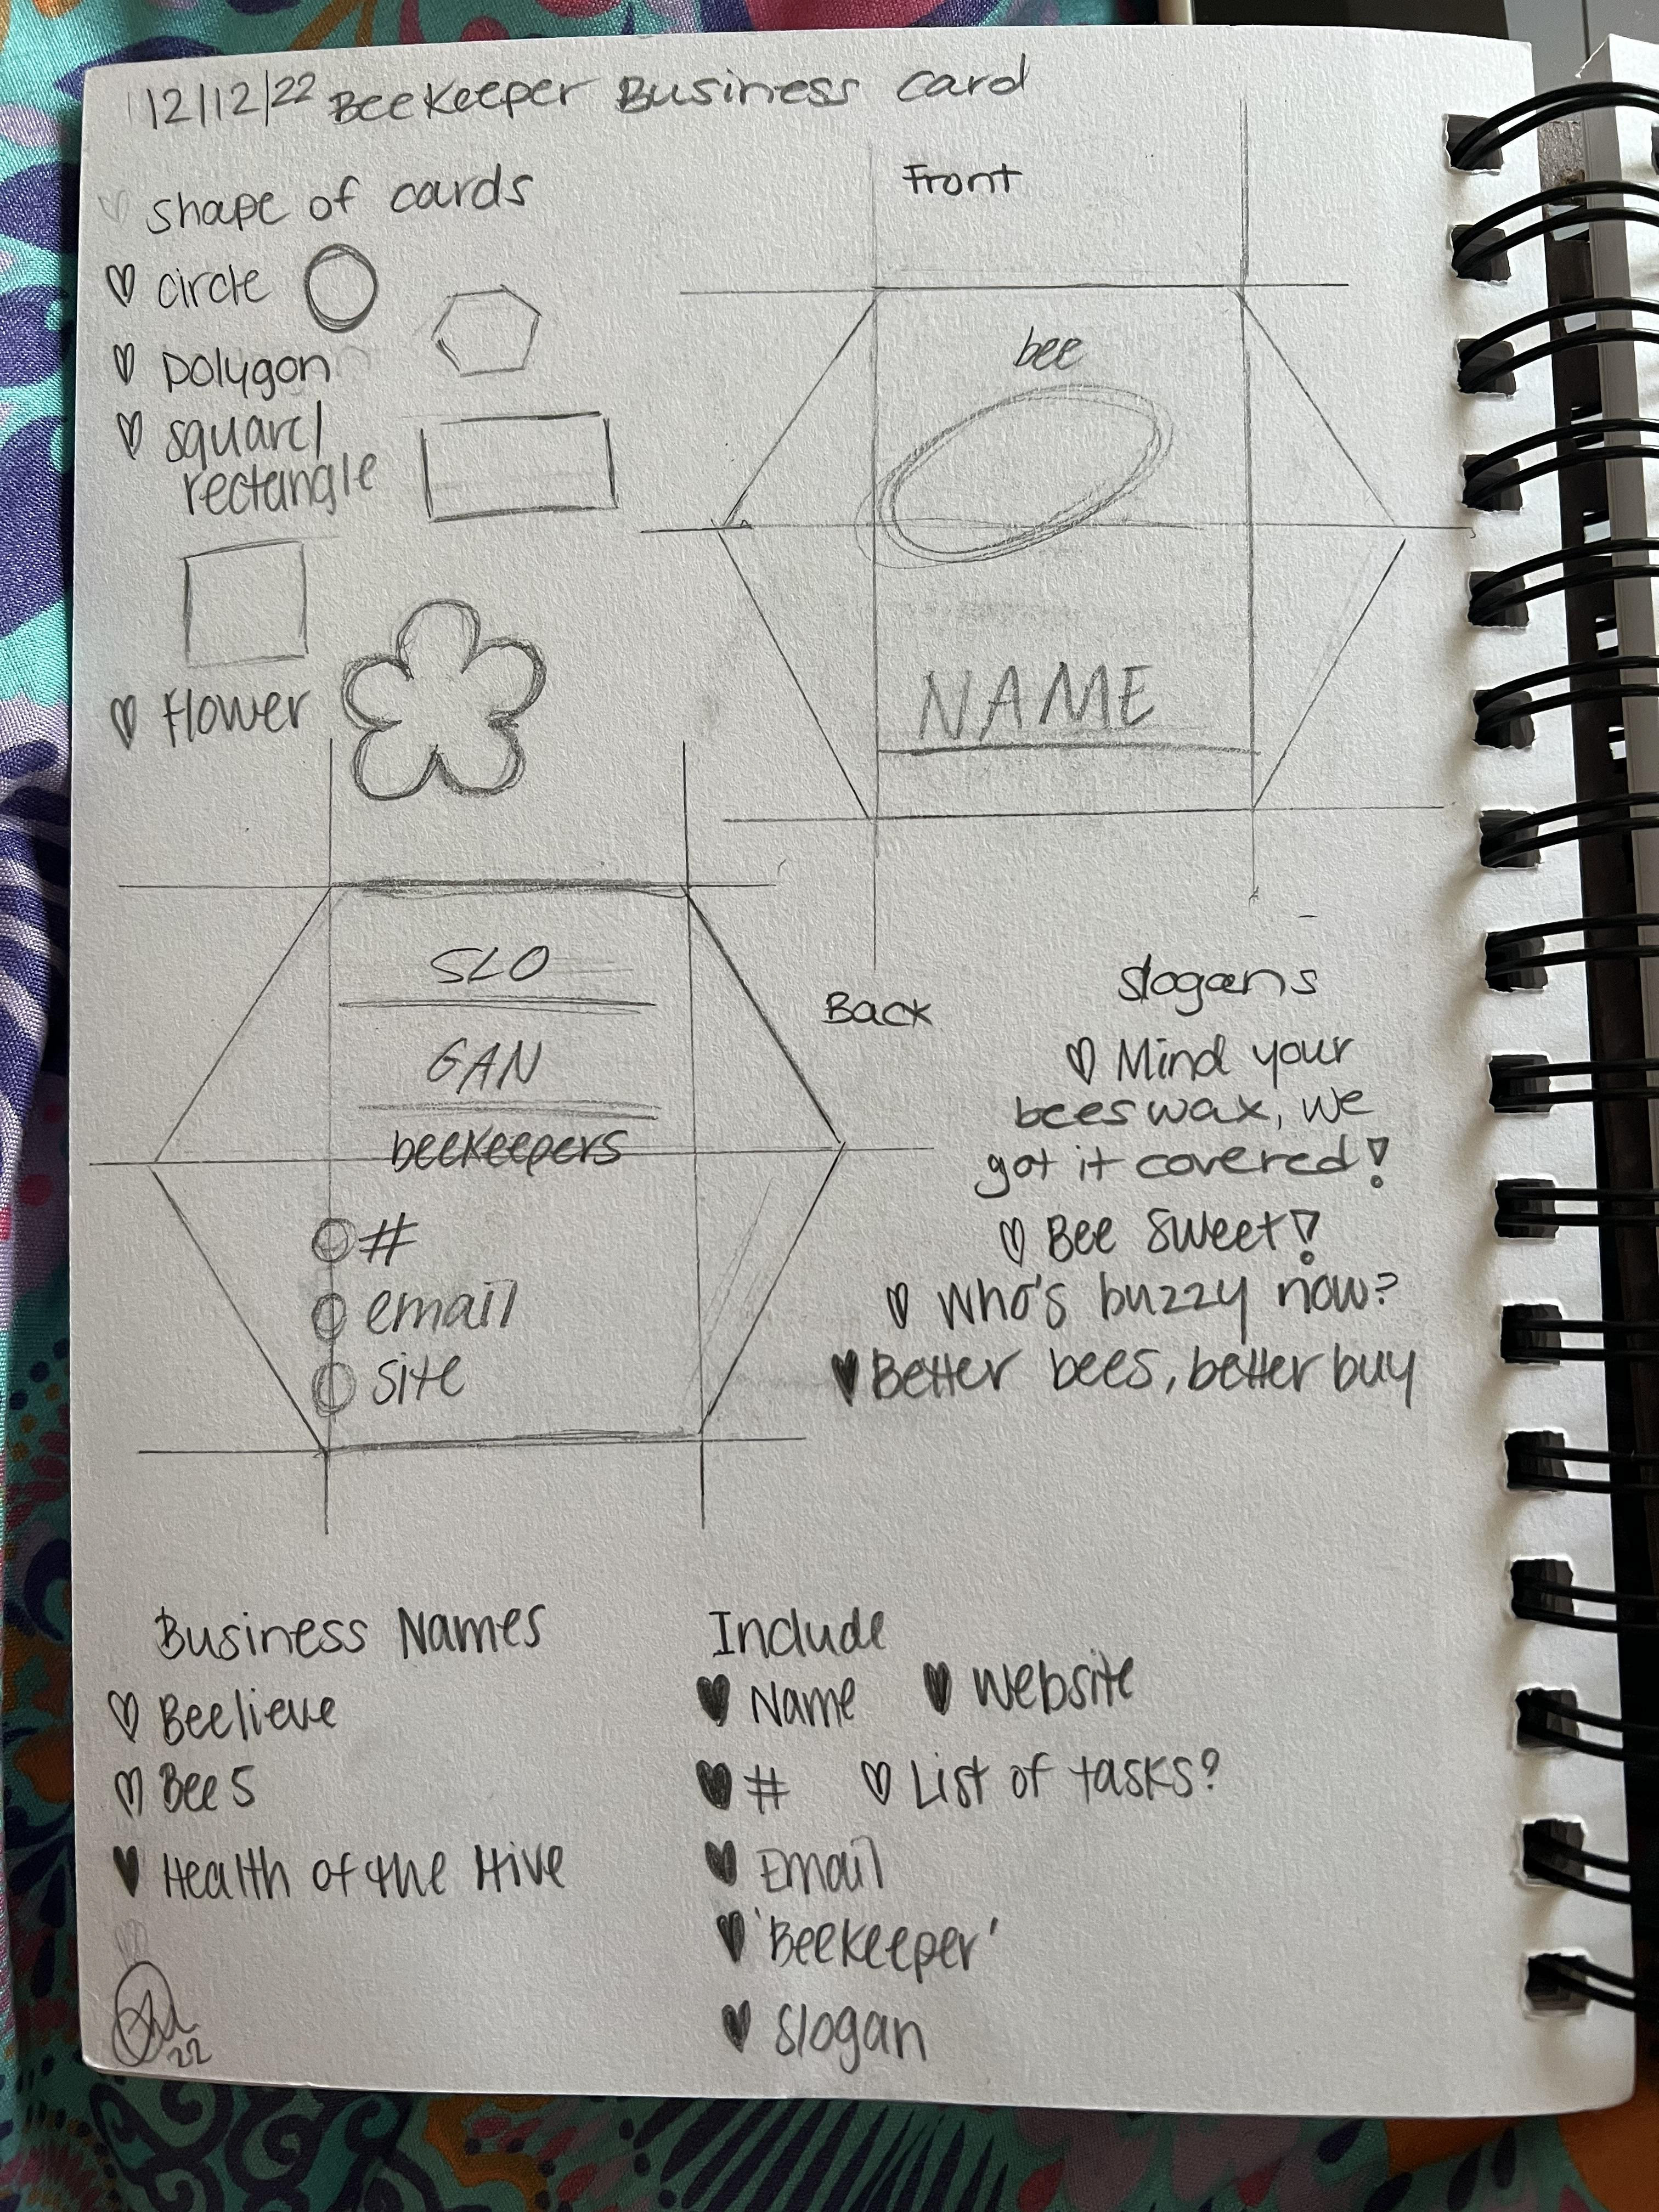 12/12/22 Beekeeper Business Card
shape of cards
circle
Polygon
square/
rectangle
Flower
Front
bee
NAME
Back
SLO
GAN
beekeepers
#
email
site
slogans
Mind your
beeswax, we
got it covered!
Bee Sweet!
Who's buzzy now?
Better bees, better buy
Business Names
Beelieve
Bee 5
Health of the Hive
Include
Name
Website
#
List of tasks?
Email
'Beekeeper'
Slogan
22